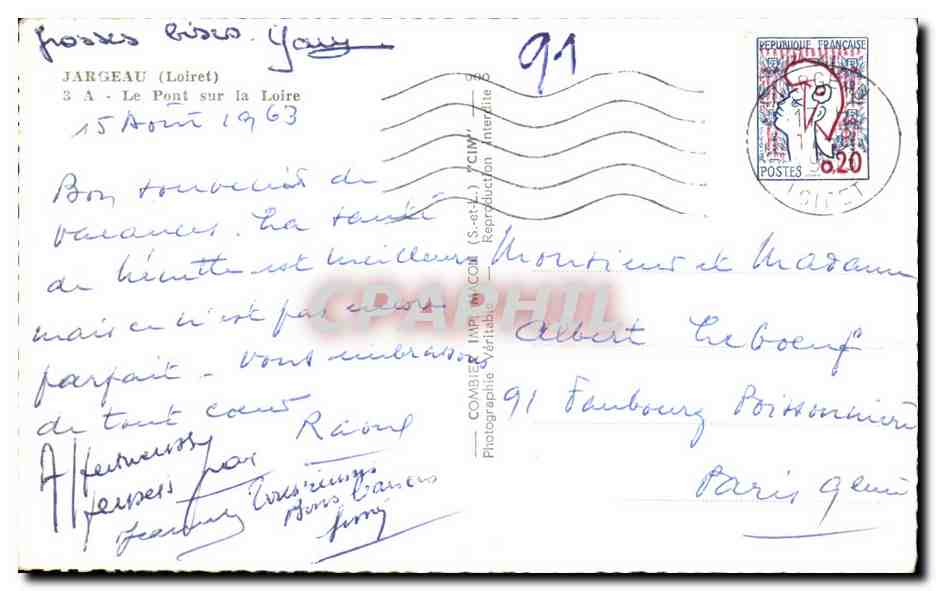 grosses bises.
91
JARGEAU (Loiret)
3 A - Le Pont sur la Loire
15 Août 1963
Bon souvenir de
vacances. La santé
de est meilleure
mais ce n'est pas encore
parfait - vous embrassons
de tout cœur
Raoul
Affectueuses
pensées par
Bons baisers
COMBIER IMP. MACON (S.-et-L.) "CIM"
Photographie Véritable - Reproduction Interdite
REPUBLIQUE FRANÇAISE
POSTES 0,20
LOIRET
Monsieur et Madame
Albert Leboeuf
91 Faubourg Poissonnière
Paris 9ème
CPAPHIL